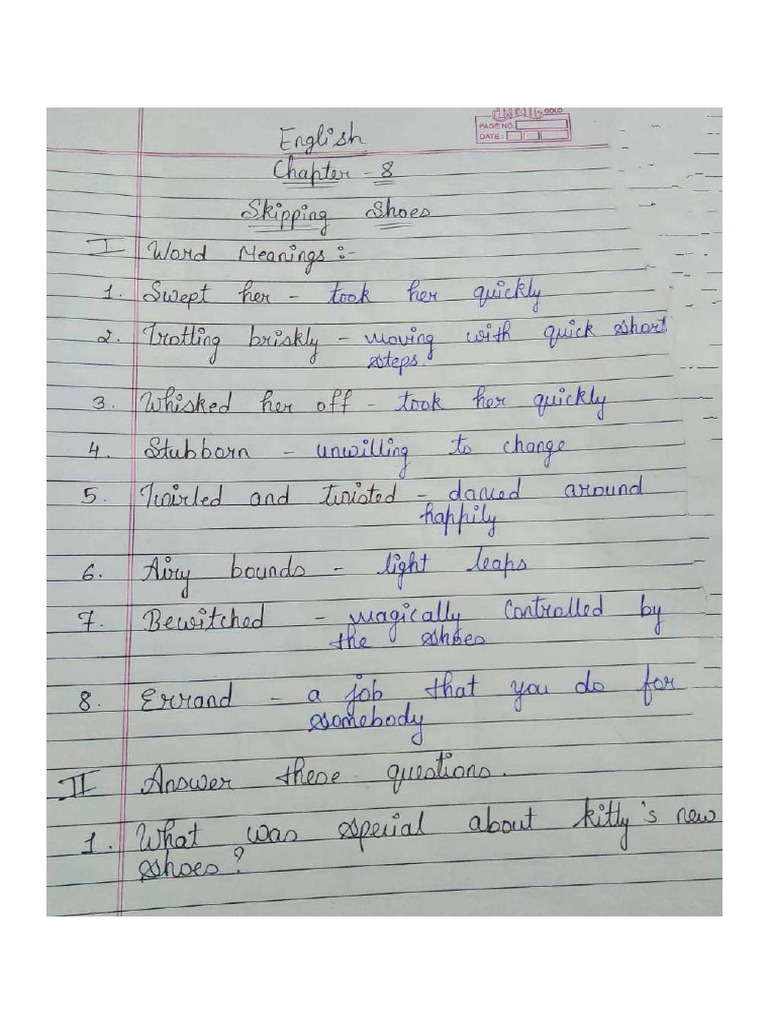 GOLD
PAGE NO.
DATE:
English
Chapter - 8
Skipping Shoes
I Word Meanings :-
1. Swept her - took her quickly
2. Trotting briskly - moving with quick short
steps.
3. Whisked her off - took her quickly
4. Stubborn - unwilling to change
5. Twirled and twisted - danced around
happily
6. Airy bounds - light leaps
7. Bewitched - magically controlled by
the shoes
8. Errand - a job that you do for
somebody
II Answer these questions.
1. What was special about kitty's new
shoes?